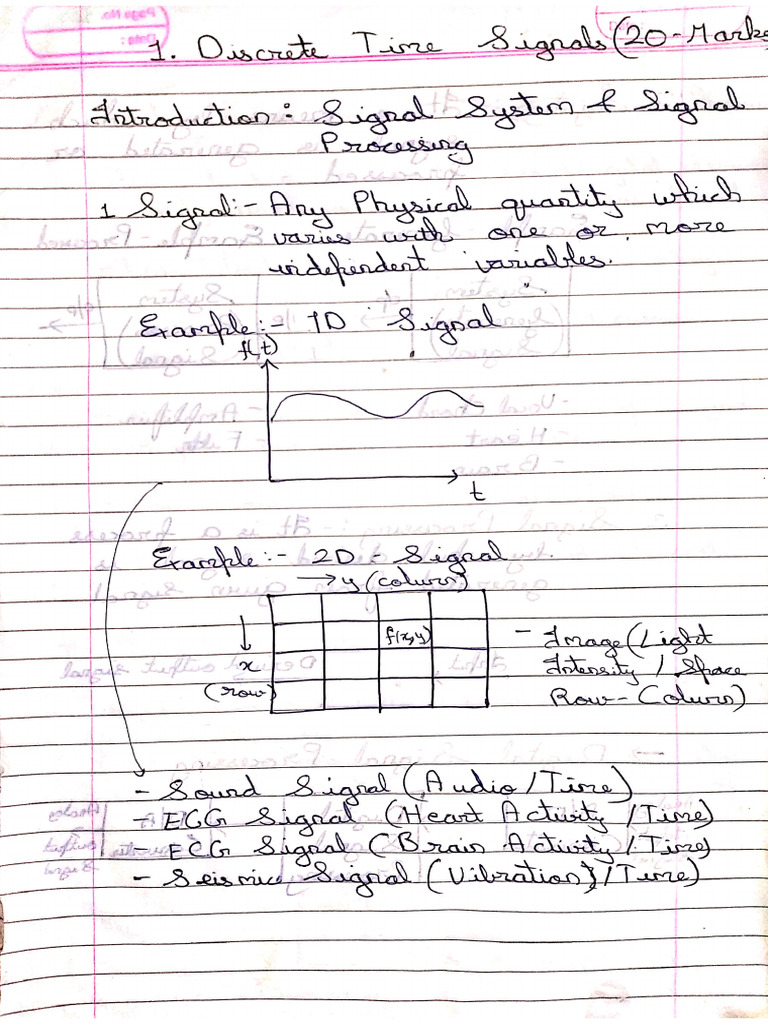 Page No.
Date:
1. Discrete Time Signals (20-Marks
Introduction: Signal System & Signal
Processing
1 Signal:- Any Physical quantity which
varies with one or more
independent variables.
Example:- 1D Signal
f(t)
t
Example:- 2D - Signal
→ y (column)
f(x,y)
x
(row)
- Image (Light
Intensity / Space
Row - Column)
- Sound Signal (Audio / Time)
- EGG Signal (Heart Activity / Time)
- ECG Signal (Brain Activity / Time)
- Seismic Signal (Vibration) / Time)